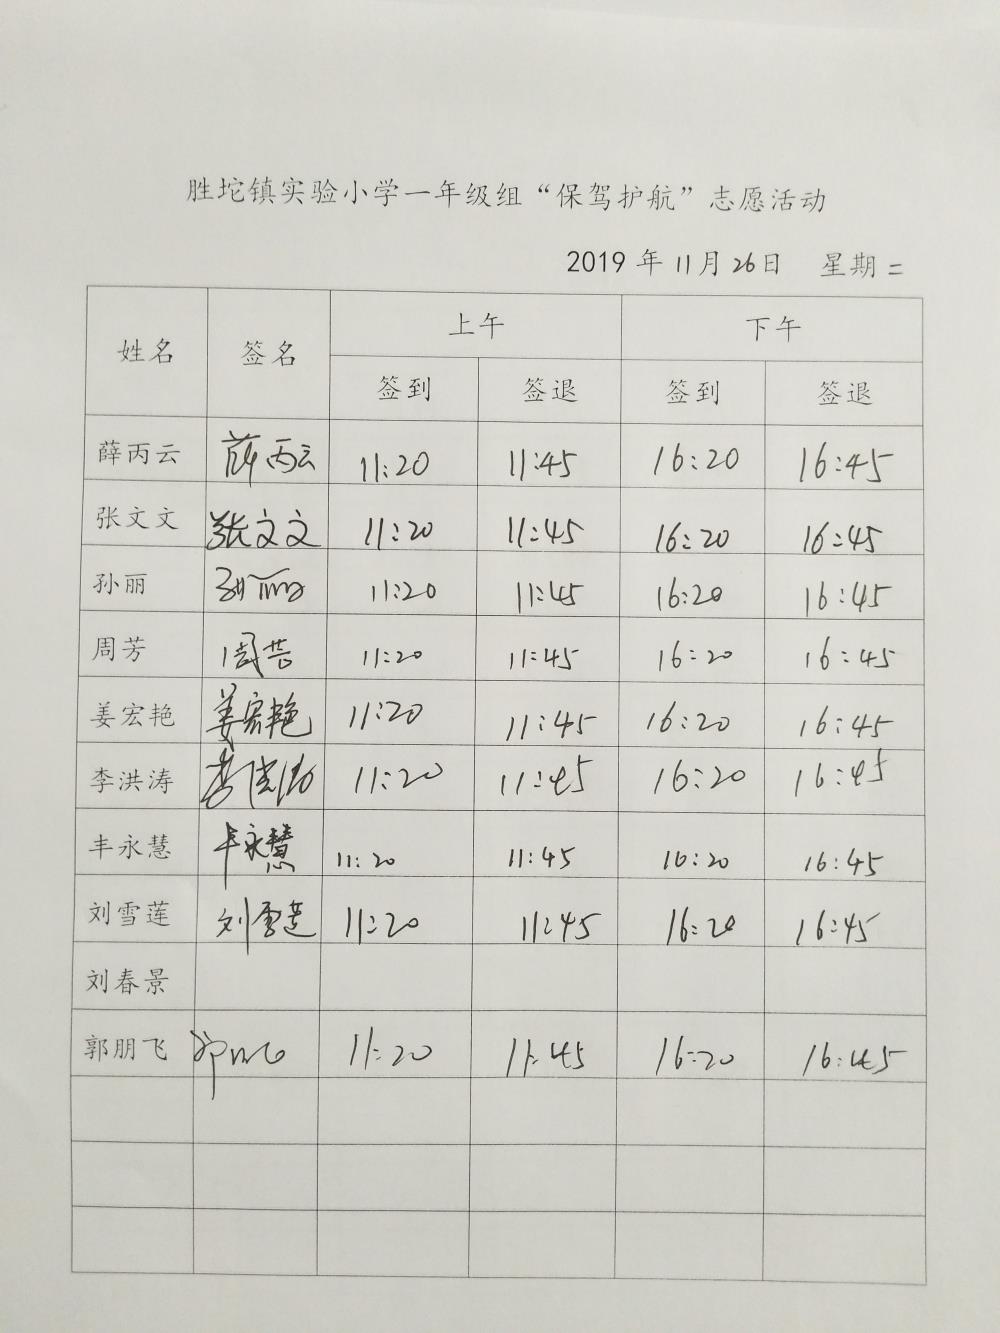 胜坨镇实验小学一年级组“保驾护航”志愿活动
2019 年 11月 26日 星期 二
姓名 签名 上午 下午
签到 签退 签到 签退
薛丙云 薛丙云 11:20 11:45 16:20 16:45
张文文 张文文 11:20 11:45 16:20 16:45
孙丽 孙丽 11:20 11:45 16:20 16:45
周芳 周芳 11:20 11:45 16:20 16:45
姜宏艳 姜宏艳 11:20 11:45 16:20 16:45
李洪涛 李洪涛 11:20 11:45 16:20 16:45
丰永慧 丰永慧 11:20 11:45 16:20 16:45
刘雪莲 刘雪莲 11:20 11:45 16:20 16:45
刘春景
郭朋飞 11:20 11:45 16:20 16:45